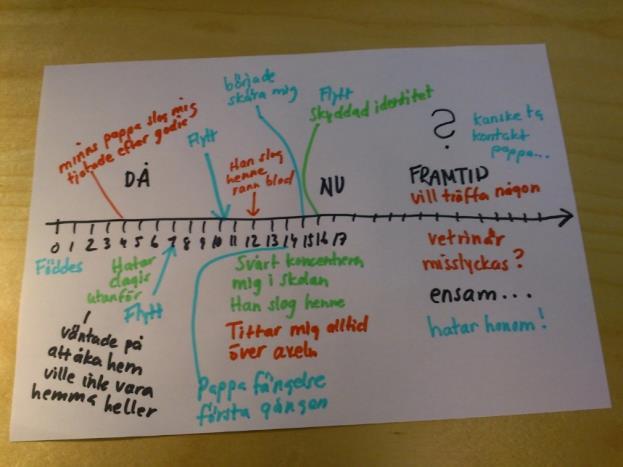 minns pappa slog mig
tjatade efter godis
DÅ
Flytt
började
skära mig
Han slog
henne
rann blod
Flytt
Skyddad identitet
NU
?
kanske ta
kontakt
pappa...
FRAMTID
vill träffa någon
0 1 2 3 4 5 6 7 8 9 10 11 12 13 14 15 16 17
Föddes
Hatar
dagis
utanför
väntade på
att åka hem
ville inte vara
hemma heller
Flytt
Svårt koncentrera
mig i skolan
Han slog henne
Tittar mig alltid
över axeln
Pappa fängelse
första gången
vetrinär
misslyckas?
ensam...
hatar honom!